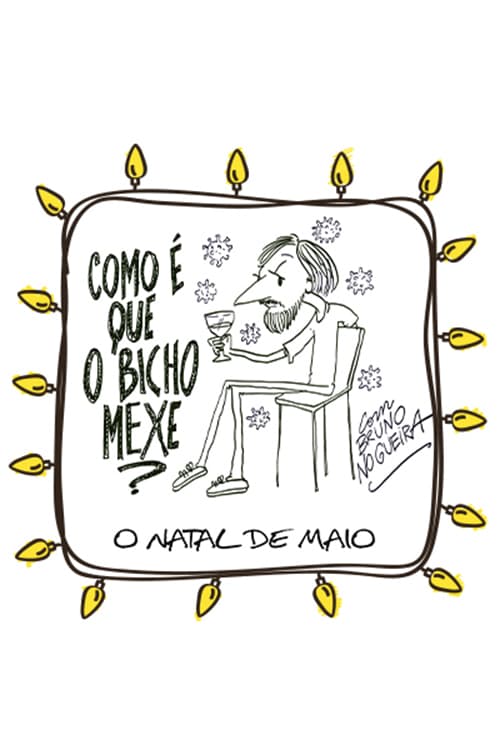 COMO É
QUE
O BICHO
MEXE
?
com
BRUNO
NOGUEIRA
O NATAL DE MAIO